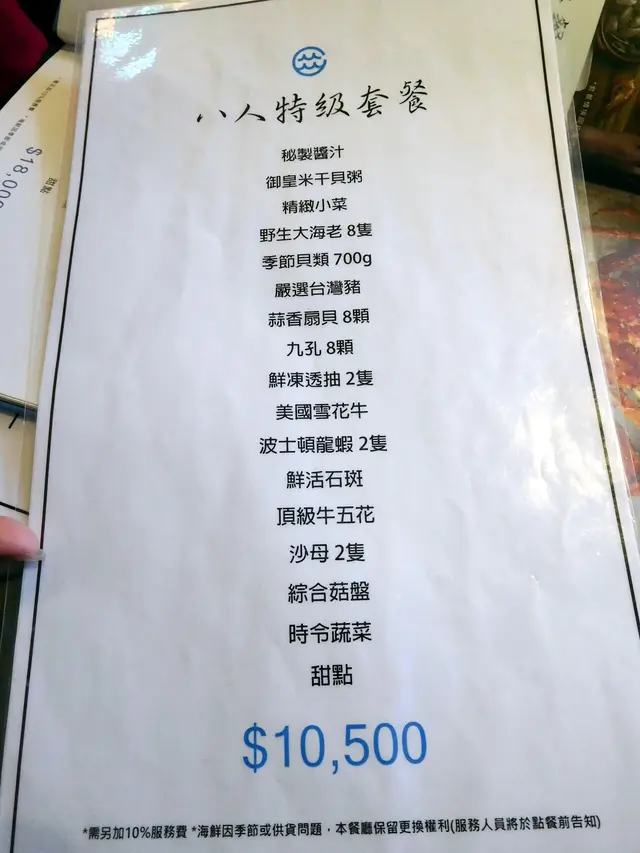 八人特級套餐
秘製醬汁
御皇米干貝粥
精緻小菜
野生大海老 8隻
季節貝類 700g
嚴選台灣豬
蒜香扇貝 8顆
九孔 8顆
鮮凍透抽 2隻
美國雪花牛
波士頓龍蝦 2隻
鮮活石斑
頂級牛五花
沙母 2隻
綜合菇盤
時令蔬菜
甜點
$10,500
*需另加10%服務費 *海鮮因季節或供貨問題，本餐廳保留更換權利(服務人員將於點餐前告知)
甜點
$18,000